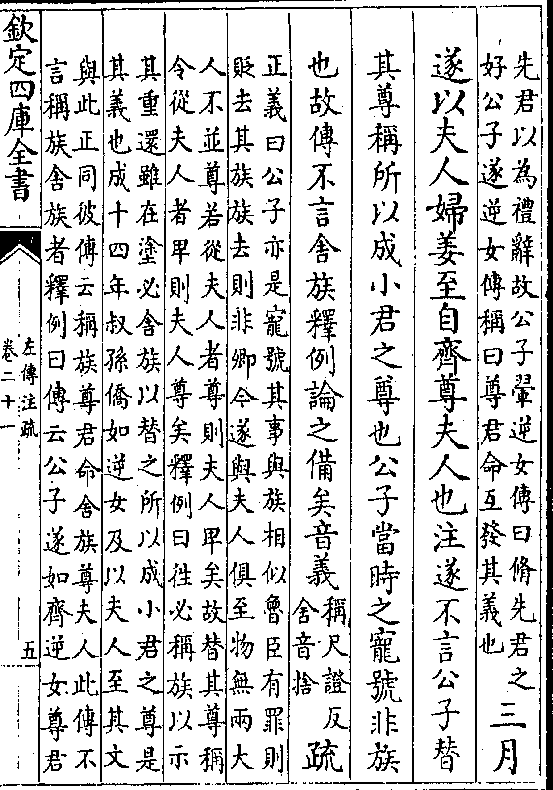 先君以為禮辭故公子翬逆女傳曰脩先君之
好公子遂逆女傳稱曰尊君命互發其義也
三月
遂以夫人婦姜至自齊尊夫人也注遂不言公子替
其尊稱所以成小君之尊也公子當時之寵號非族
也故傳不言舍族釋例論之備矣音義
稱尺證反
舍音捨
疏
正義曰公子亦是寵號其事與族相似魯臣有罪則
貶去其族族去則非卿今遂與夫人俱至物無兩大
人不並尊若從夫人者尊則夫人卑矣故替其尊稱
令從夫人者卑則夫人尊矣釋例曰徃必稱族以示
其重還雖在塗必舍族以替之所以成小君之尊是
其義也成十四年叔孫僑如逆女及以夫人至其文
與此正同彼傳云稱族尊君命舍族尊夫人此傳不
言稱族舍族者釋例曰傳云公子遂如齊逆女尊君
欽定四庫全書
左傳注疏
卷二十一
五